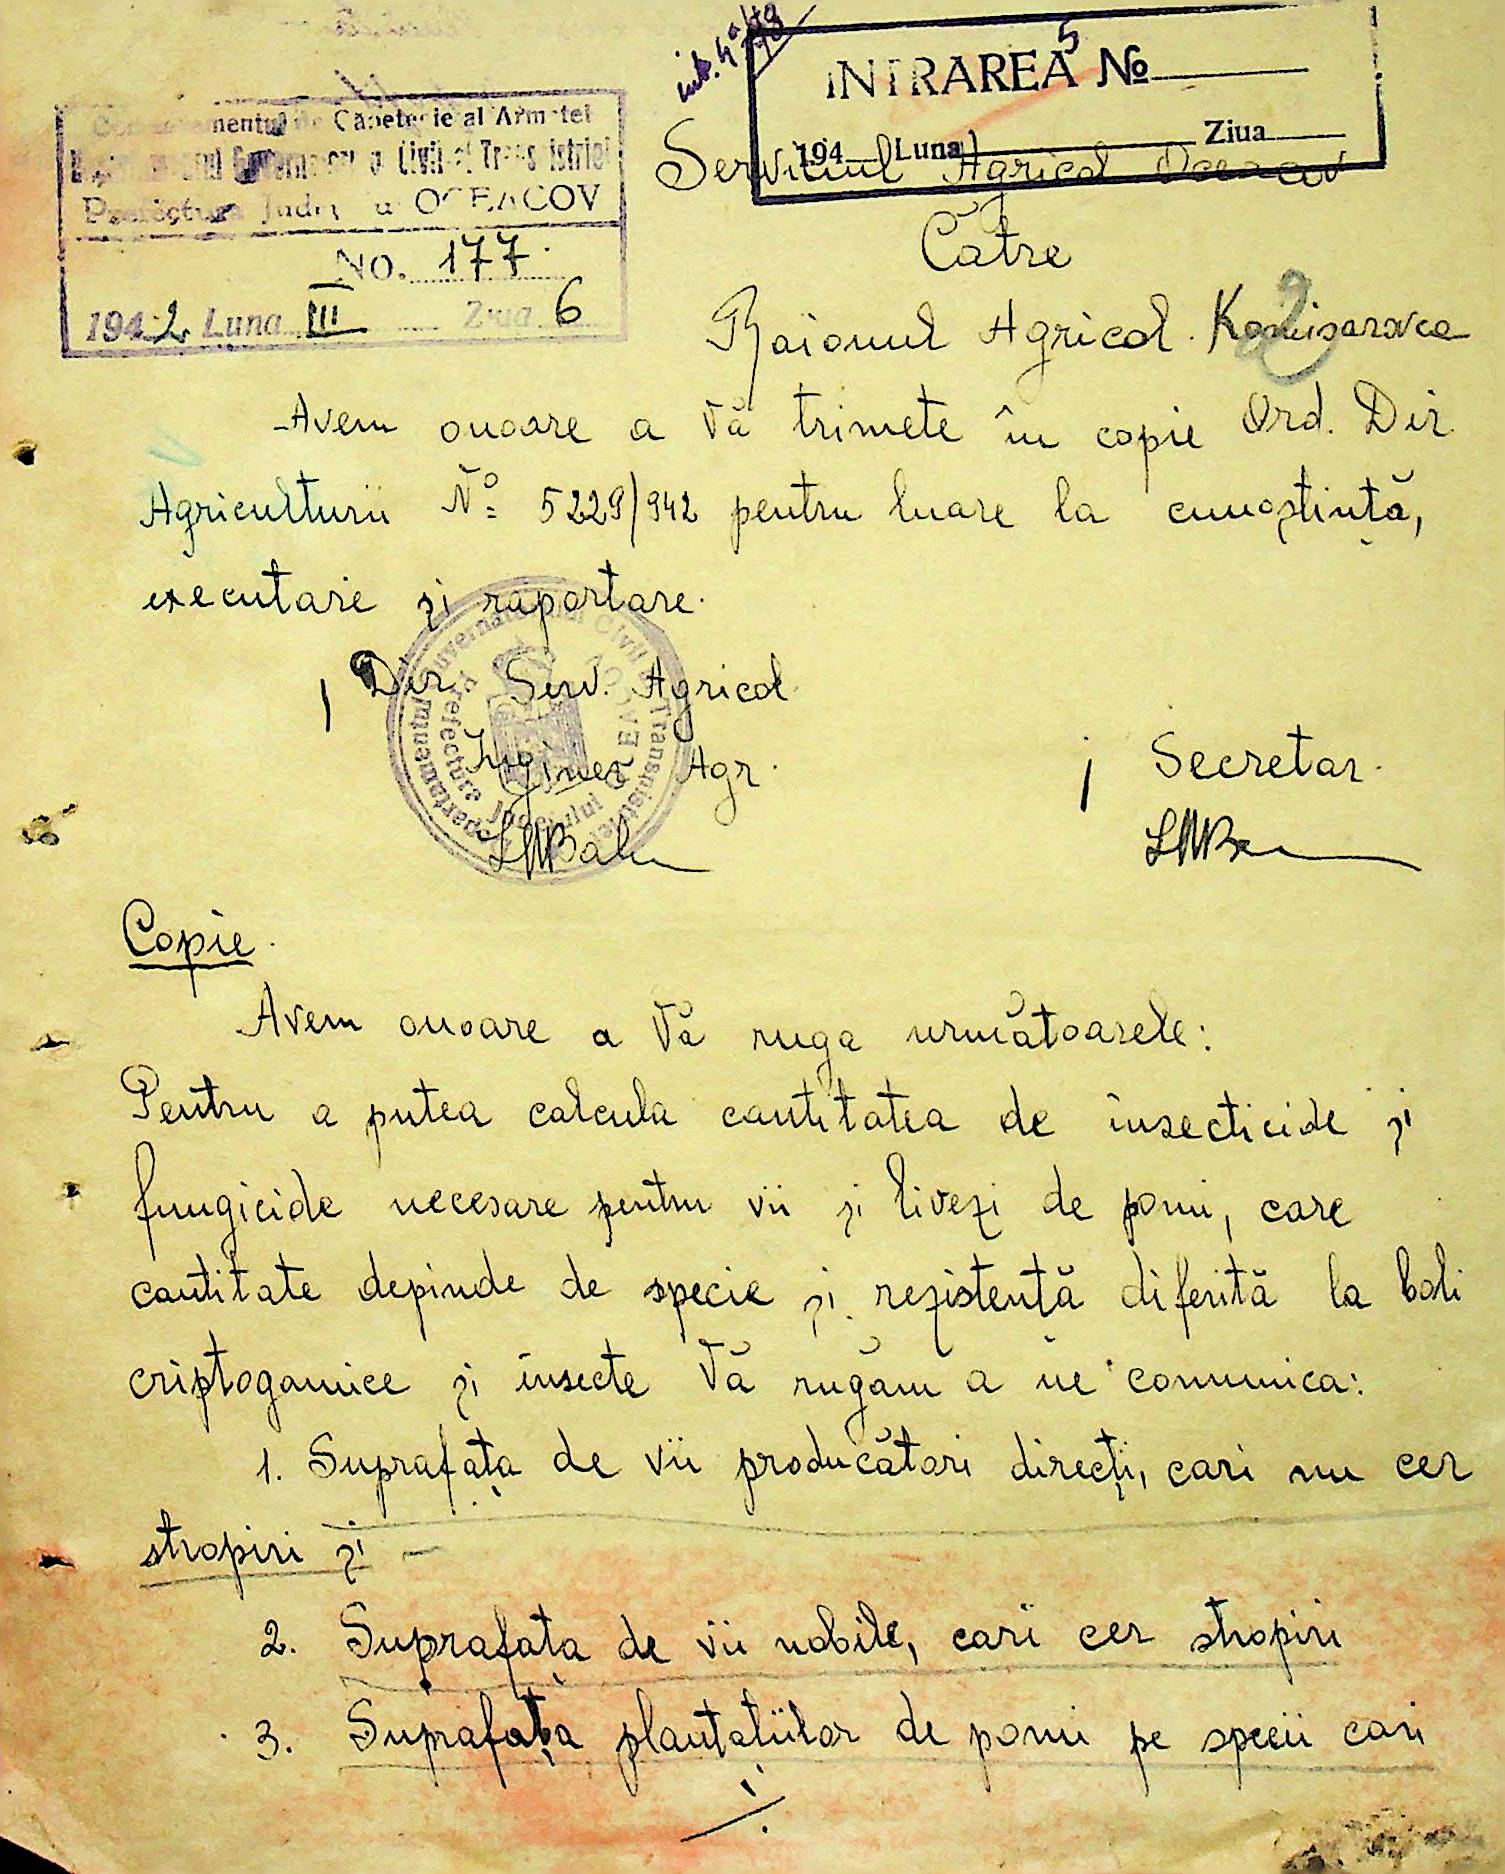 int. 4ª/48
INTRAREA No
5
194 Luna Ziua
Comandamentul de Căpetenie al Armatei
Departamentul Guvernământului Civil al Transnistriei
Prefectura Județului OCEACOV
No. 177
1942 Luna III Ziua 6
Serviciul Agricol Oceacov
Către
Raionul Agricol Komisarovca
2
Avem onoare a Vă trimete în copie Ord. Dir.
Agriculturii No 5229/942 pentru luare la cunoștință,
executare și raportare.
Dir. Serv. Agricol
Inginer Agr.
Secretar.
Copie.
Avem onoare a Vă ruga următoarele:
Pentru a putea calcula cantitatea de insecticide și
fungicide necesare pentru vii și livezi de pomi, care
cantitate depinde de specie și rezistență diferită la boli
criptogamice și insecte Vă rugăm a ne comunica:
1. Suprafața de vii producători direcți, cari nu cer
stropiri și —
2. Suprafața de vii nobile, cari cer stropiri
3. Suprafața plantațiilor de pomi pe specii cari
./.